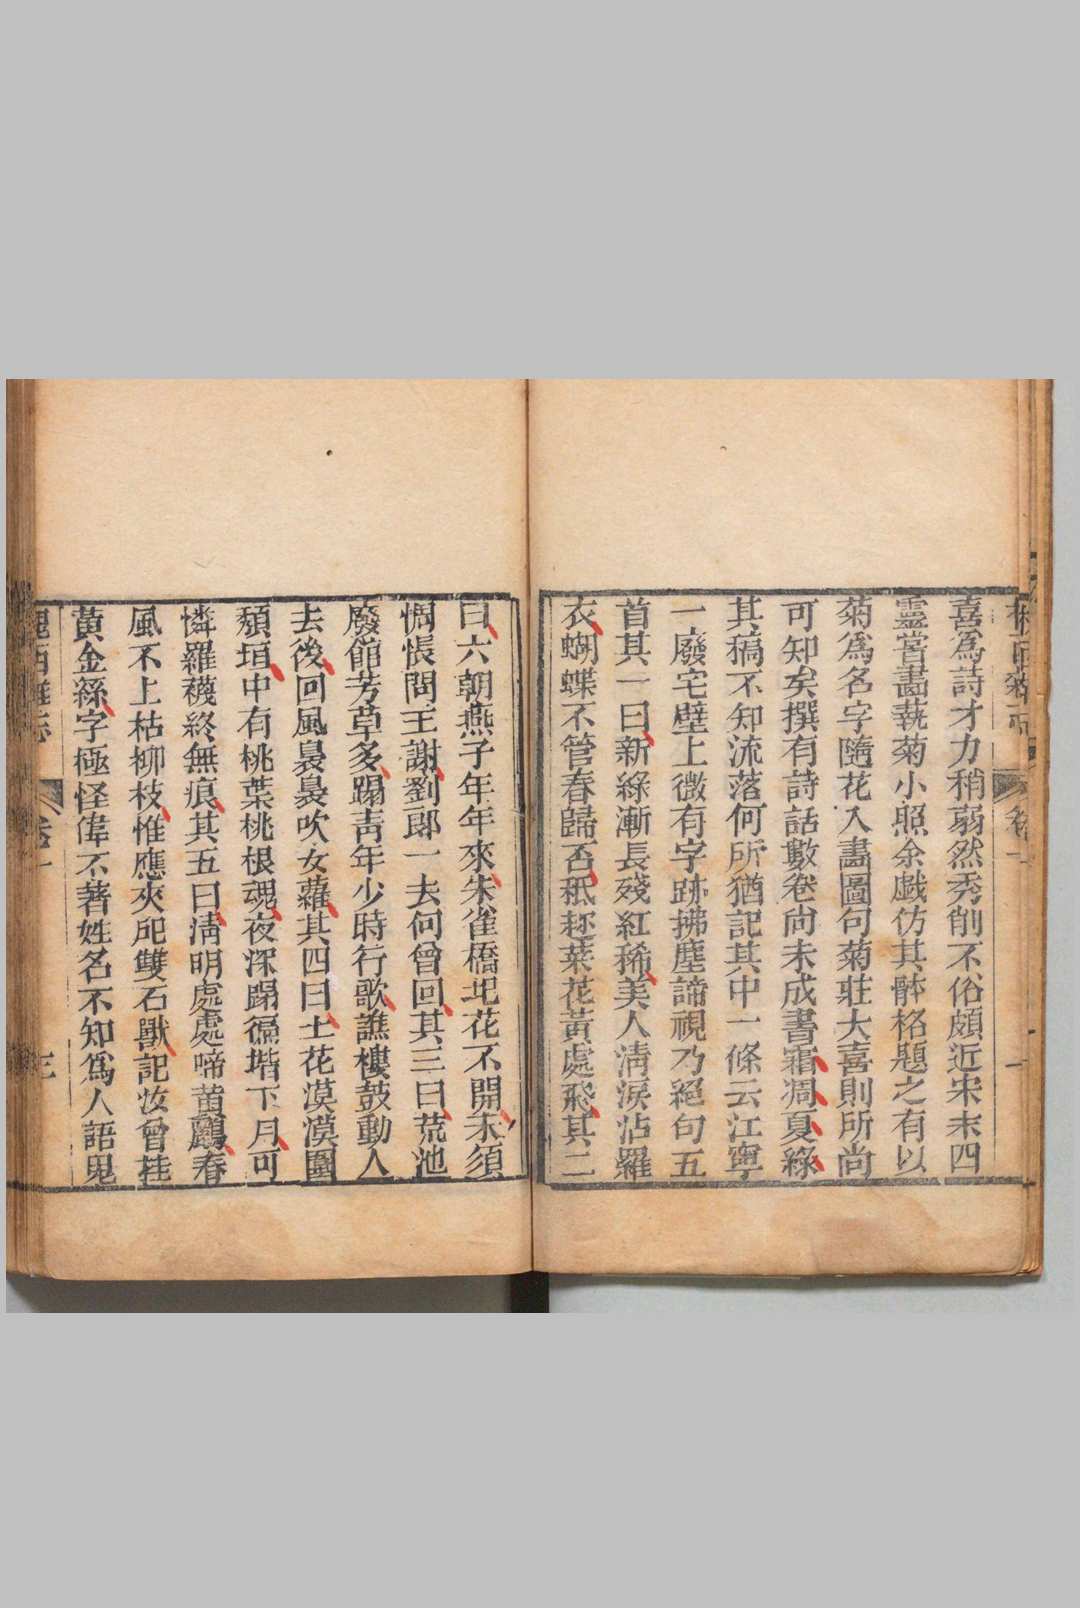 喜為詩才力稍弱然秀削不俗頗近宋末四
靈嘗畫執菊小照余戲仿其體格題之有以
菊為名字隨花入畫圖句菊莊大喜則所尚
可知矣撰有詩話數卷尚未成書霜凋夏綠
其稿不知流落何所猶記其中一條云江寧
一廢宅壁上微有字跡拂塵諦視乃絕句五
首其一曰新綠漸長殘紅稀美人清淚沾羅
衣蝴蝶不管春歸否秪趂菜花黃處飛其二
曰六朝燕子年年來朱雀橋圯花不開未須
惆悵問王謝劉郎一去何曾回其三曰荒池
廢館芳草多踢青年少時行歌譙樓鼓動人
去後回風裊裊吹女蘿其四曰土花漠漠圍
頹垣中有桃葉桃根魂夜深踢徧堦下月可
憐羅襪終無痕其五曰清明處處啼黃鸝春
風不上枯柳枝惟應夾𨸝雙石獸記汝曾挂
黃金絲字極怪偉不著姓名不知為人語鬼
槐西雜志
卷一
三